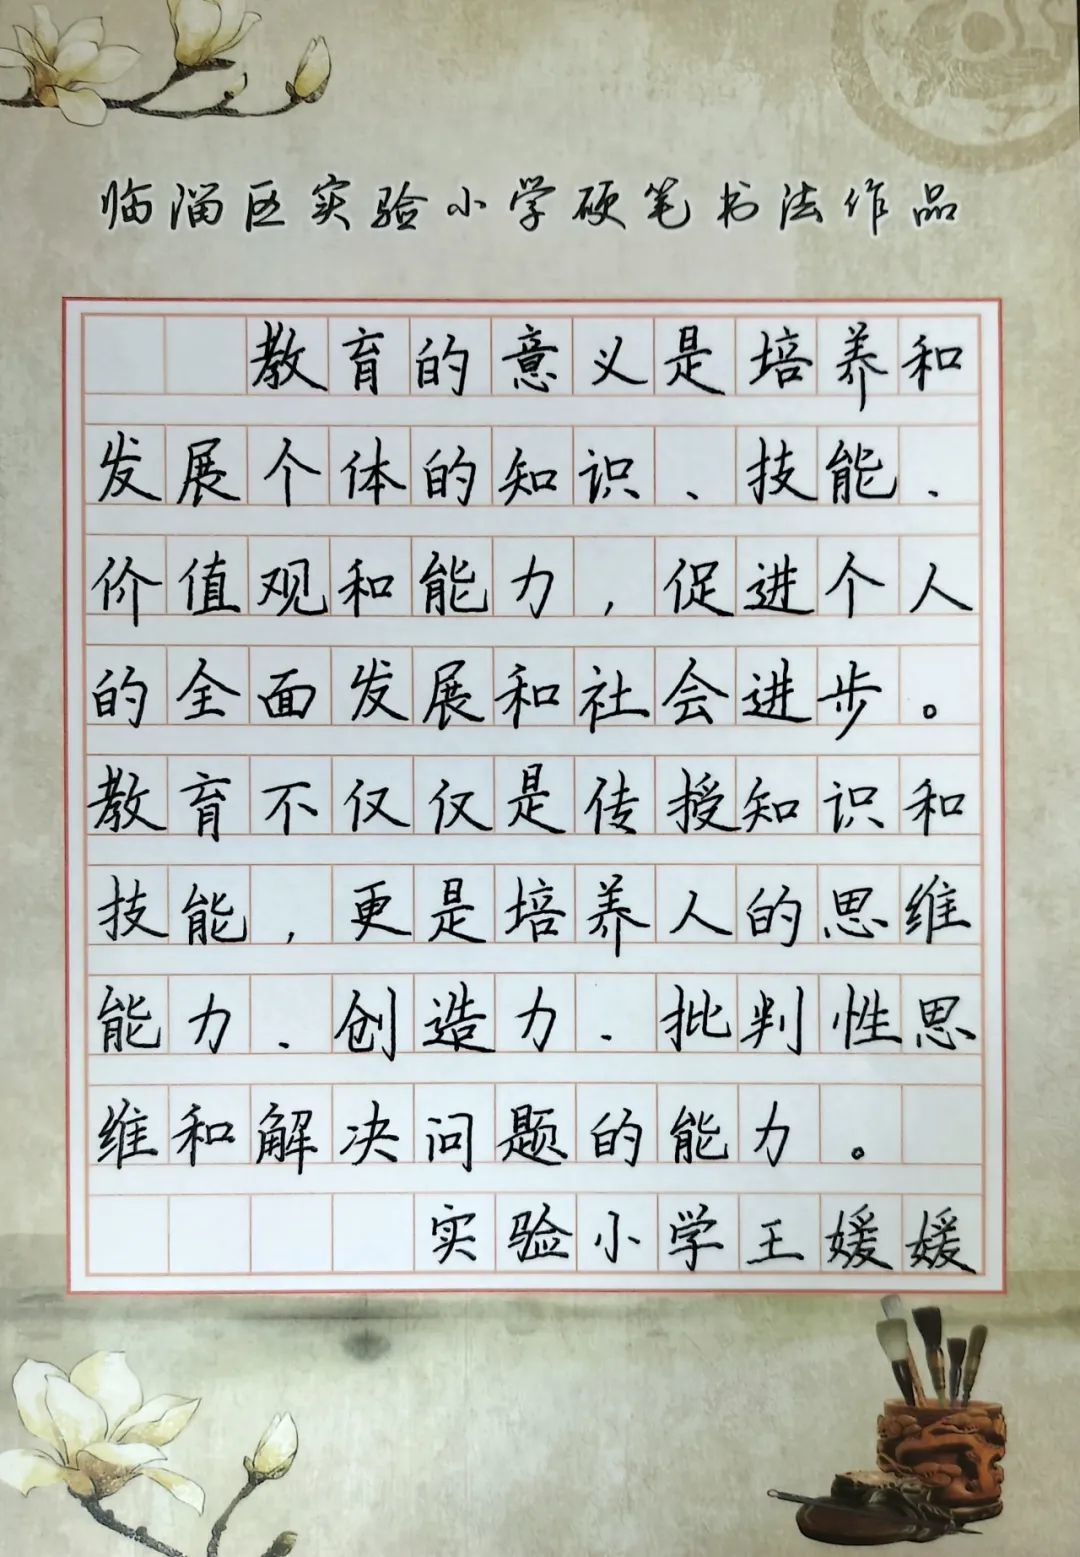 临淄区实验小学硬笔书法作品
教育的意义是培养和
发展个体的知识、技能、
价值观和能力，促进个人
的全面发展和社会进步。
教育不仅仅是传授知识和
技能，更是培养人的思维
能力、创造力、批判性思
维和解决问题的能力。
实验小学王媛媛